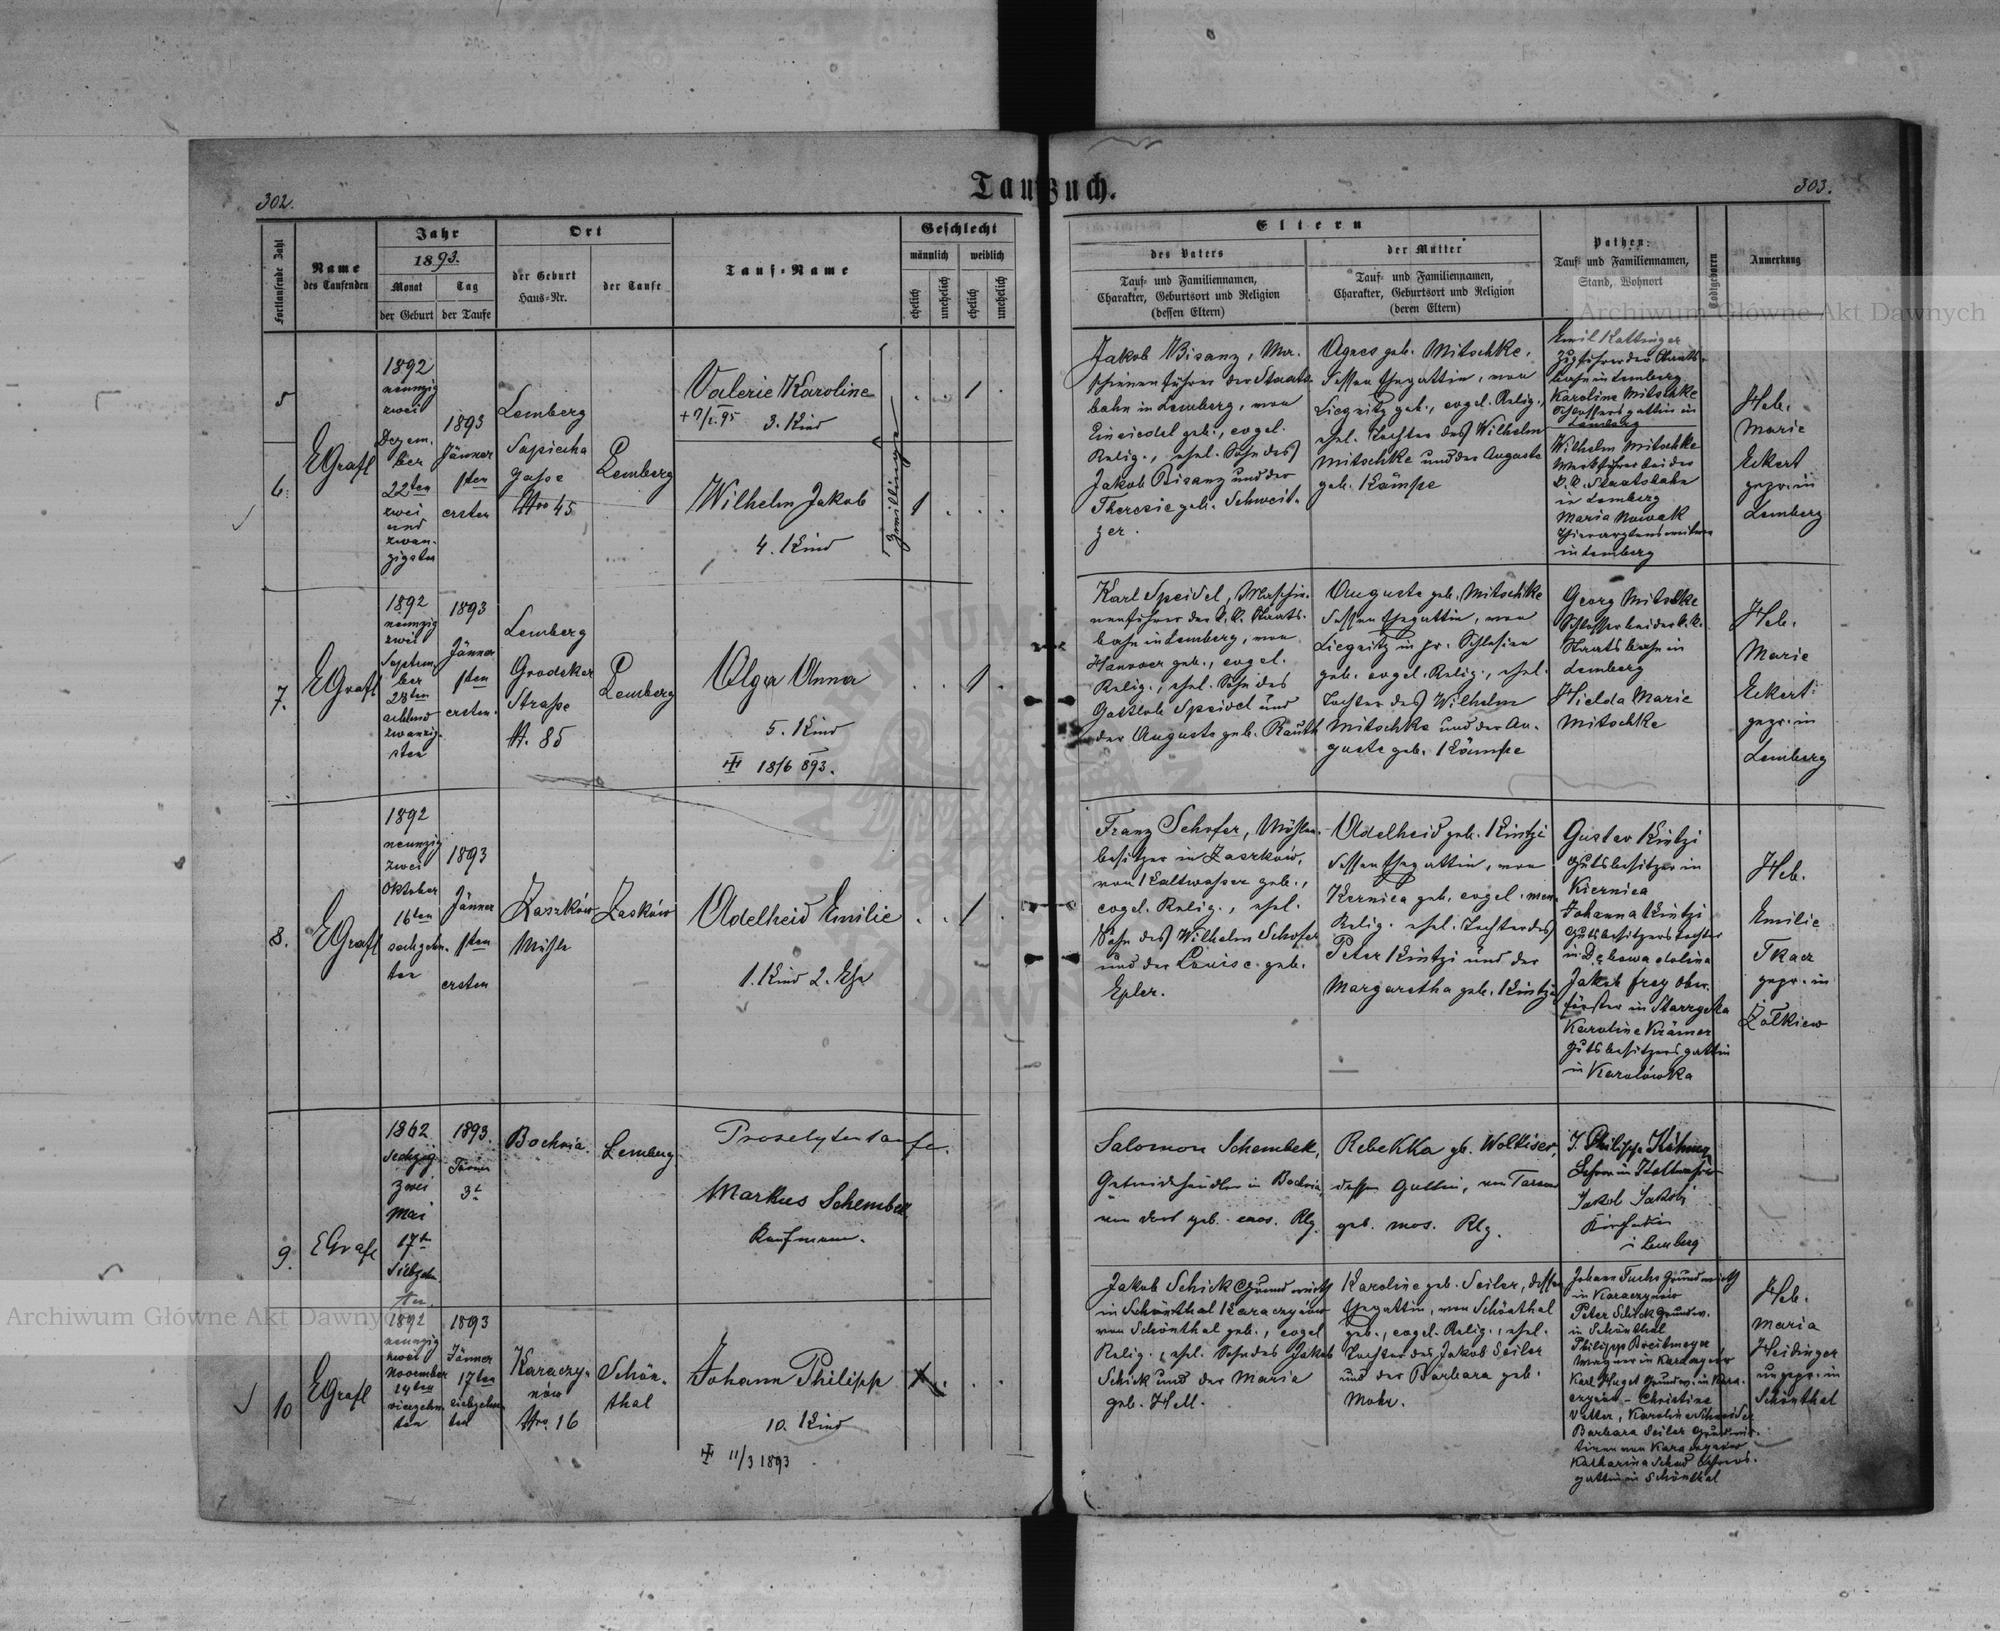 302.
Taufbuch.
303.
Fortlaufende Zahl
Name
des Taufenden
Jahr
1893.
Monat
der Geburt
Tag
der Taufe
Ort
der Geburt
Haus-Nr.
der Taufe
Tauf-Name
Geschlecht
männlich
weiblich
ehelich
unehelich
ehelich
unehelich
Eltern
des Vaters
Tauf- und Familiennamen,
Charakter, Geburtsort und Religion
(dessen Eltern)
der Mutter
Tauf- und Familiennamen,
Charakter, Geburtsort und Religion
(deren Eltern)
Pathen:
Tauf- und Familiennamen,
Stand, Wohnort
Todtgeboren
Anmerkung
5
6.
EGrafl
1892
neunzig
zwei
Dezem-
ber
22ten
zwei
und
zwan-
zigsten
1893
Jänner
1ten
ersten
Lemberg
Sapieha
gasse
Nro 45
Lemberg
Valerie Karoline
3. Kind
Wilhelm Jakob
4. Kind
Zwillinge
Jakob Bisanz, Ma-
schinenführer der Staats-
bahn in Lemberg, von
Einsiedel geb., evgel.
Relig., ehel. Sohn des
Jakob Bisanz und der
Theresie geb. Schweit-
zer.
Agnes geb. Mitschke,
dessen Ehegattin, von
Liegnitz geb., evgel. Relig.,
ehel. Tochter des Wilhelm
Mitschke und der Auguste
geb. Kämpe
Emil Kattinger
Zugführer der Staats-
bahn in Lemberg
Karoline Mitschke
Schlossersgattin in
Lemberg
Wilhelm Mitschke
Werkführer bei der
k. k. Staatsbahn
in Lemberg
Maria Nowak
in Lemberg
Heb.
Marie
Eckert
gepr. in
Lemberg
7.
EGrafl
1892
neunzig
zwei
Septem-
ber
28ten
achtund
zwanzig-
sten
1893
Jänner
1ten
ersten.
Lemberg
Grodeker
Strasse
N. 85
Lemberg
Olga Anna
5. Kind
18/6 893.
Karl Speidel, Maschin-
nenführer der k. k. Staats-
bahn in Lemberg, von
Hannover geb., evgel.
Relig., ehel. Sohn des
Gottlob Speidel und
der Auguste geb. Rauth
Auguste geb. Mitschke
dessen Ehegattin, von
Liegnitz in pr. Schlesien
geb. evgel. Relig., ehel.
Tochter des Wilhelm
Mitschke und der Au-
guste geb. Kämpe
Georg Mitschke
Schlosser bei der k. k.
Staatsbahn in
Lemberg
Hielda Marie
Mitschke
Heb.
Marie
Eckert
gepr. in
Lemberg
8.
EGrafl
1892
neunzig
zwei
Oktober
16ten
sechzehn-
ten
1893
Jänner
1ten
ersten
Zaszków
Mühle
Zasków
Adelheid Emilie
1. Kind 2. Ehe
Franz Schofer, Mühlen-
besitzer in Zaszków,
von Kaltwasser geb.,
evgel. Relig., ehel.
Sohn des Wilhelm Schofer
und der Louise geb.
Epler.
Adelheid geb. Kintzi
dessen Ehegattin, von
Kernica geb. evgel. men.
Relig. ehel. Tochter des
Peter Kintzi und der
Margaretha geb. Kintzi
Gustav Kintzi
Gutsbesitzer in
Kiernica
Johanna Kintzi
Gutsbesitzerstochter
in Dębowa dolina
Jakob Frey Ober-
förster in Starzyska
Karoline Krämer
Gutsbesitzersgattin
in Karolówka
Heb.
Emilie
Tkacz
gepr. in
Żółkiew
9.
EGrafl
1862
Sechzig
Zwei
Mai
17t
Siebzehn-
ten
1893.
Jänner
3t
Bochnia
Lemberg
Proselytentaufe.
Markus Schembek
Kaufmann.
Salomon Schembek,
Getreidehändler in Bochnia,
von dort geb. mos. Rlg.
Rebekka gb. Woltiser,
dessen Gattin, von Tarnow
geb. mos. Rlg.
J. Philipp Köhner
Lehrer in Kaltwasser
Jakob Jakobi
i Lemberg
10
EGrafl
1892
neunzig
zwei
November
14ten
vierzehn-
ten
1893
Jänner
17ten
siebzehn-
ten
Karaczy-
nów
Nro. 16
Schön-
thal
Johann Philipp
10. Kind
11/3 1893
Jakob Schick Grundwirth
in Schönthal Karaczynów
von Schönthal geb., evgel
Relig., ehel. Sohn des Jakob
Schick und der Maria
geb. Hell.
Karoline geb. Seiler, dessen
Ehegattin, von Schönthal
geb., evgel. Relig., ehel.
Tochter des Jakob Seiler
und der Barbara geb.
Mohr.
Johann Fuchs Grundwirth
in Karaczynów
Peter Schick Grundw.
in Schönthal
Philipp Breitmeyer
Wagner in Karaczynów
Karl Huget Grundw. in Kara-
czynów - Christine
Vetter, Karoline Schneider
Barbara Seiler Grundwir-
tinen von Karaczynów
Katharina Schad Lehrers-
gattin in Schönthal
Heb.
Maria
Heidinger
ungepr. in
Schönthal
Archiwum Główne Akt Dawnych
Archiwum Główne Akt Dawnych